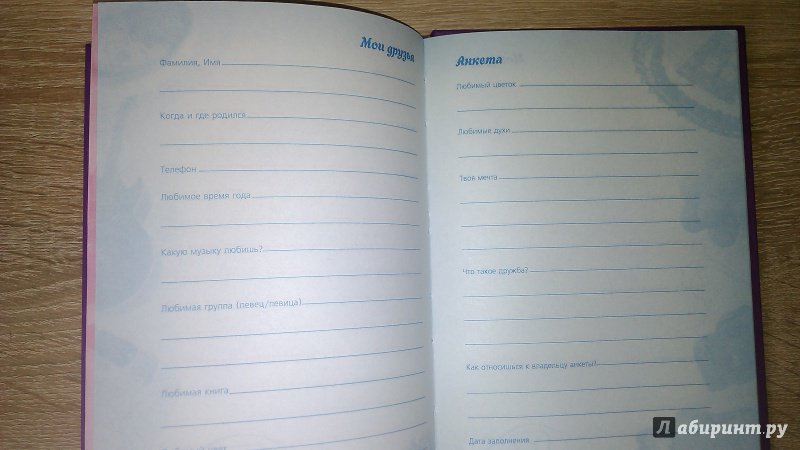 Мои друзья
Фамилия, Имя
Когда и где родился
Телефон
Любимое время года
Какую музыку любишь?
Любимая группа (певец/певица)
Любимая книга
Анкета
Любимый цветок
Любимые духи
Твоя мечта
Что такое дружба?
Как относишься к владельцу анкеты?
Дата заполнения
Лабиринт.ру